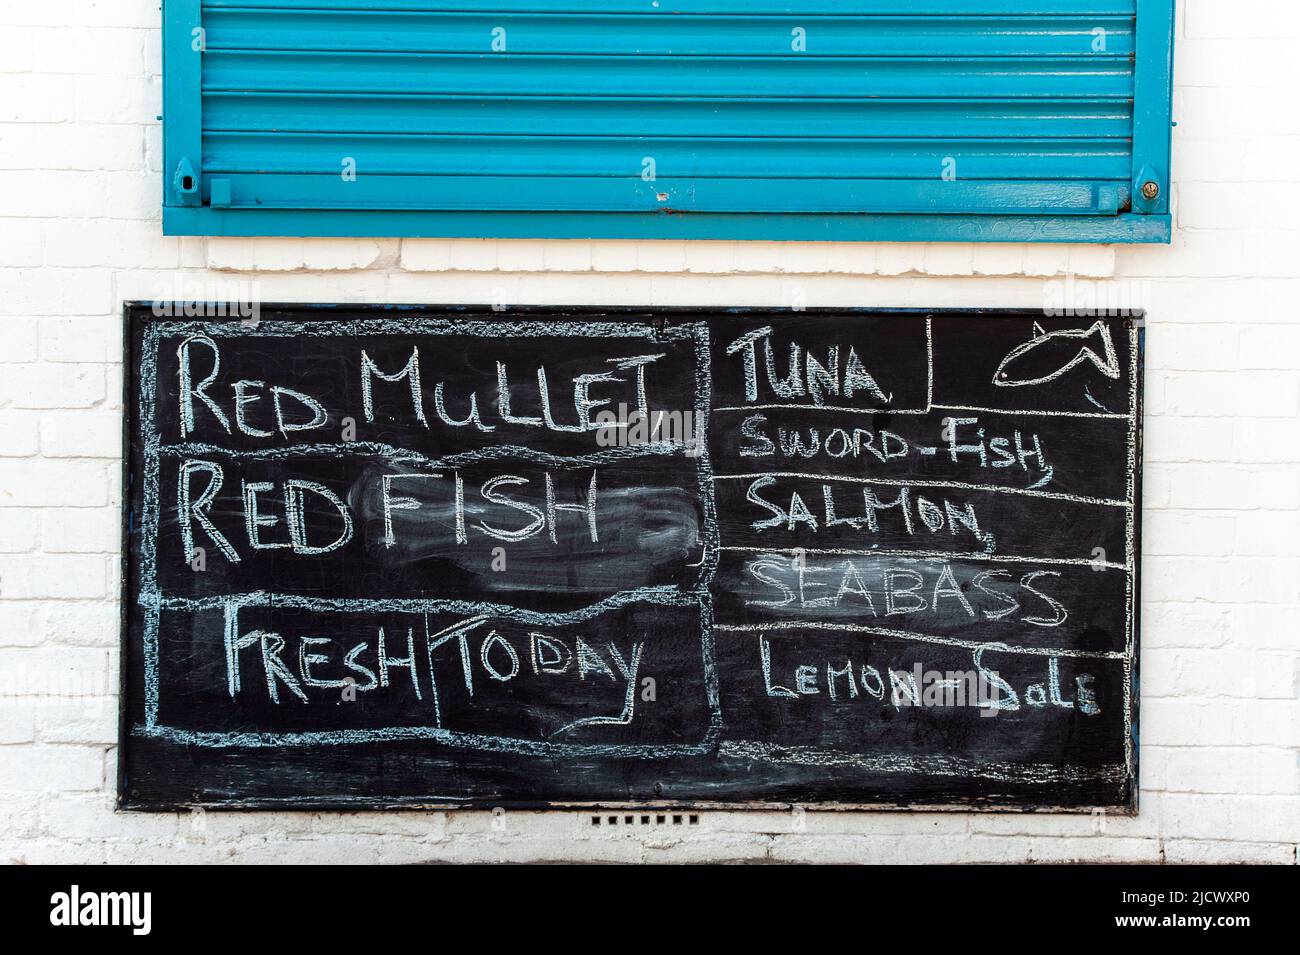 RED MULLET,
RED FISH
FRESH TODAY
TUNA,
SWORD-FISH,
SALMON,
SEABASS
LEMON-SOLE
a
a
a
a
a
a
a
a
alamy
Image ID: 2JCWXP0
www.alamy.com